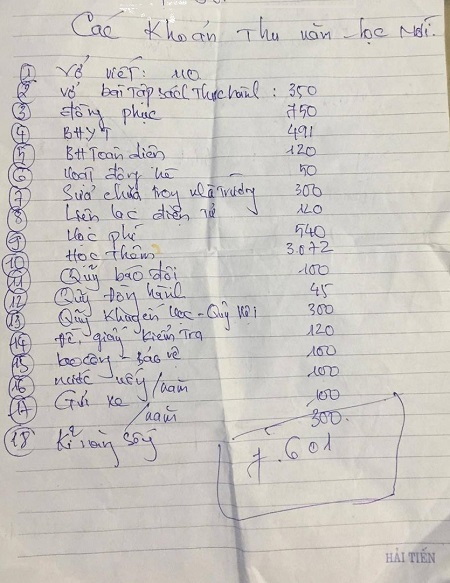 Các Khoản Thu năm học Mới.
1 Vở viết: 110
2 Vở bài tập sách thực hành: 350
3 đồng phục 750
4 BHYT 491
5 BH Toàn diện 120
6 Hoạt động hè 50
7 Sửa chữa trong nhà trường 300
8 Liên lạc điện tử 120
9 Học phí 540
10 Học thêm 3.072
11 Quỹ bao đôi 100
12 Quỹ Đồng hành 45
13 Quỹ khuyến học - Quỹ Hội 300
14 Đề, giấy kiểm tra 120
15 lao công - bảo vệ 100
16 nước uống/năm 100
17 Gửi xe /năm 100
18 Kĩ năng sống 300.
7.601
HẢI TIẾN